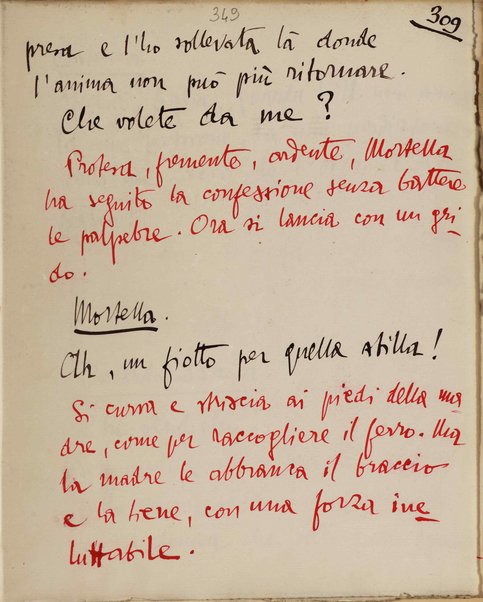 349
309
presa e l'ho sollevata là donde
l'anima non può più ritornare.
Che volete da me?
Protesa, fremente, ardente, Mortella
ha seguito la confessione senza battere
le palpebre. Ora si lancia con un gri-
do.
Mortella.
Ah, un fiotto per quella stilla!
Si curva e striscia ai piedi della ma
dre, come per raccogliere il ferro. Ma
la madre le abbranca il braccio
e la tiene, con una forza ine
luttabile.